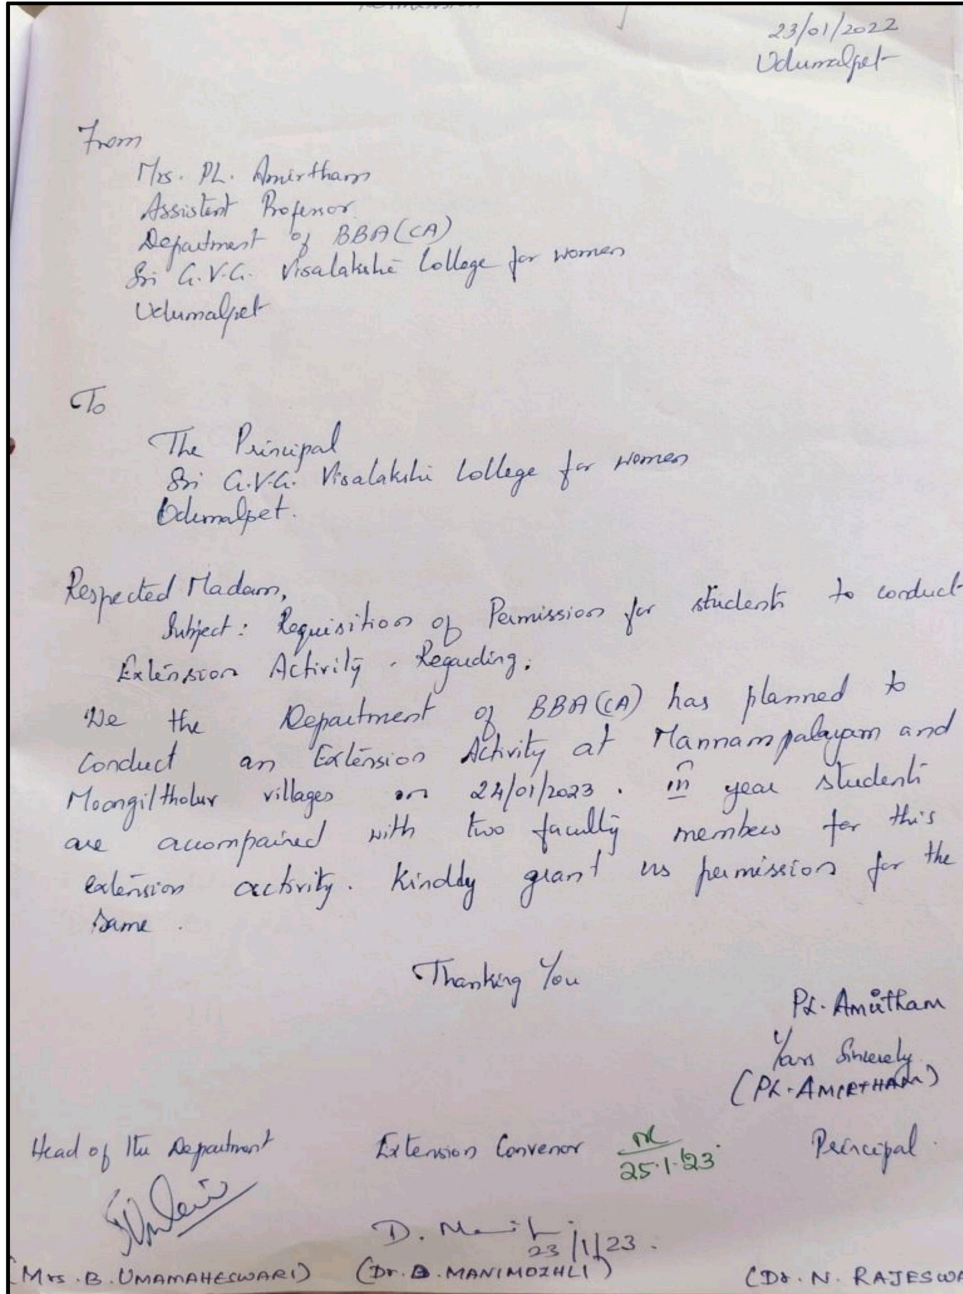 23/01/2022
Udumalpet
From
Mrs. PL. Amirtham
Assistent Professor
Department of BBA(CA)
Sri G.V.G. Visalakshi College for women
Udumalpet
To
The Principal
Sri G.V.G. Visalakshi College for women
Udumalpet.
Respected Madam,
Subject: Requisition of Permission for students to conduct
Extension Activity - Regarding.
We the Department of BBA(CA) has planned to
Conduct an Extension Activity at Mannampalayam and
Moongiltholuv villages on 24/01/2023. III year students
are accompained with two faculty members for this
extension activity. Kinddy grant us permission for the
same.
Thanking You
PL. Amirtham
Yours Sincerely
(PL. AMIRTHAM)
Head of the Department Extension Convenor 25.1.23 Principal.
D. 23/1/23.
(Mrs. B. UMAMAHESWARI) (Dr. D. MANIMOZHLI) (Dr. N. RAJESWA